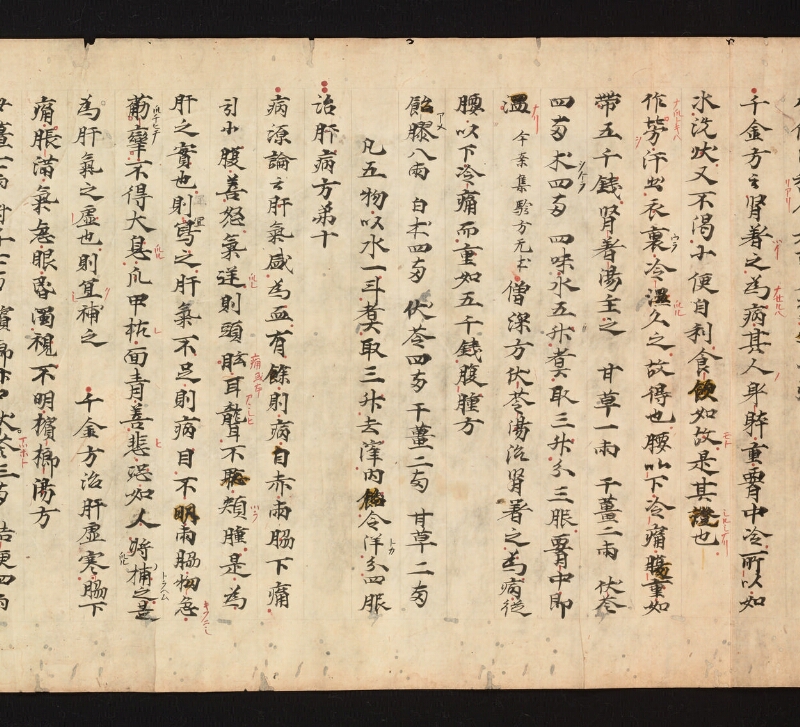 千金方云腎著之為病其人身躰重腰中冷所以如
水洗狀又不渴小便自利食飲如故是其證也
作勞汗出衣裏冷濕久之故得也腰以下冷痛腹重如
帶五千錢腎著湯主之 甘草一兩 干薑二兩 伏苓
四兩 朮四兩 四味水五升煮取三升分三服腰中即
溫 今案集驗方无朮 僧深方伏苓湯治腎著之為病從
腰以下冷痛而重如五千錢腹腫方
飴膠八兩 白朮四兩 伏苓四兩 干薑二兩 甘草二兩
凡五物以水一斗煮取三升去滓內飴令洋分四服
治肝病方第十
病源論云肝氣盛為血有餘則病目赤兩脇下痛
引小腹善怒氣逆則頭眩耳聾不聰頰腫是為
肝之實也則寫之肝氣不足則病目不明兩脇拘急
筋攣不得大息爪甲枯面青善悲恐如人將捕之是
為肝氣之虛也則宜補之 千金方治肝虛寒脇下
痛脹滿氣急眼昏濁視不明檳榔湯方